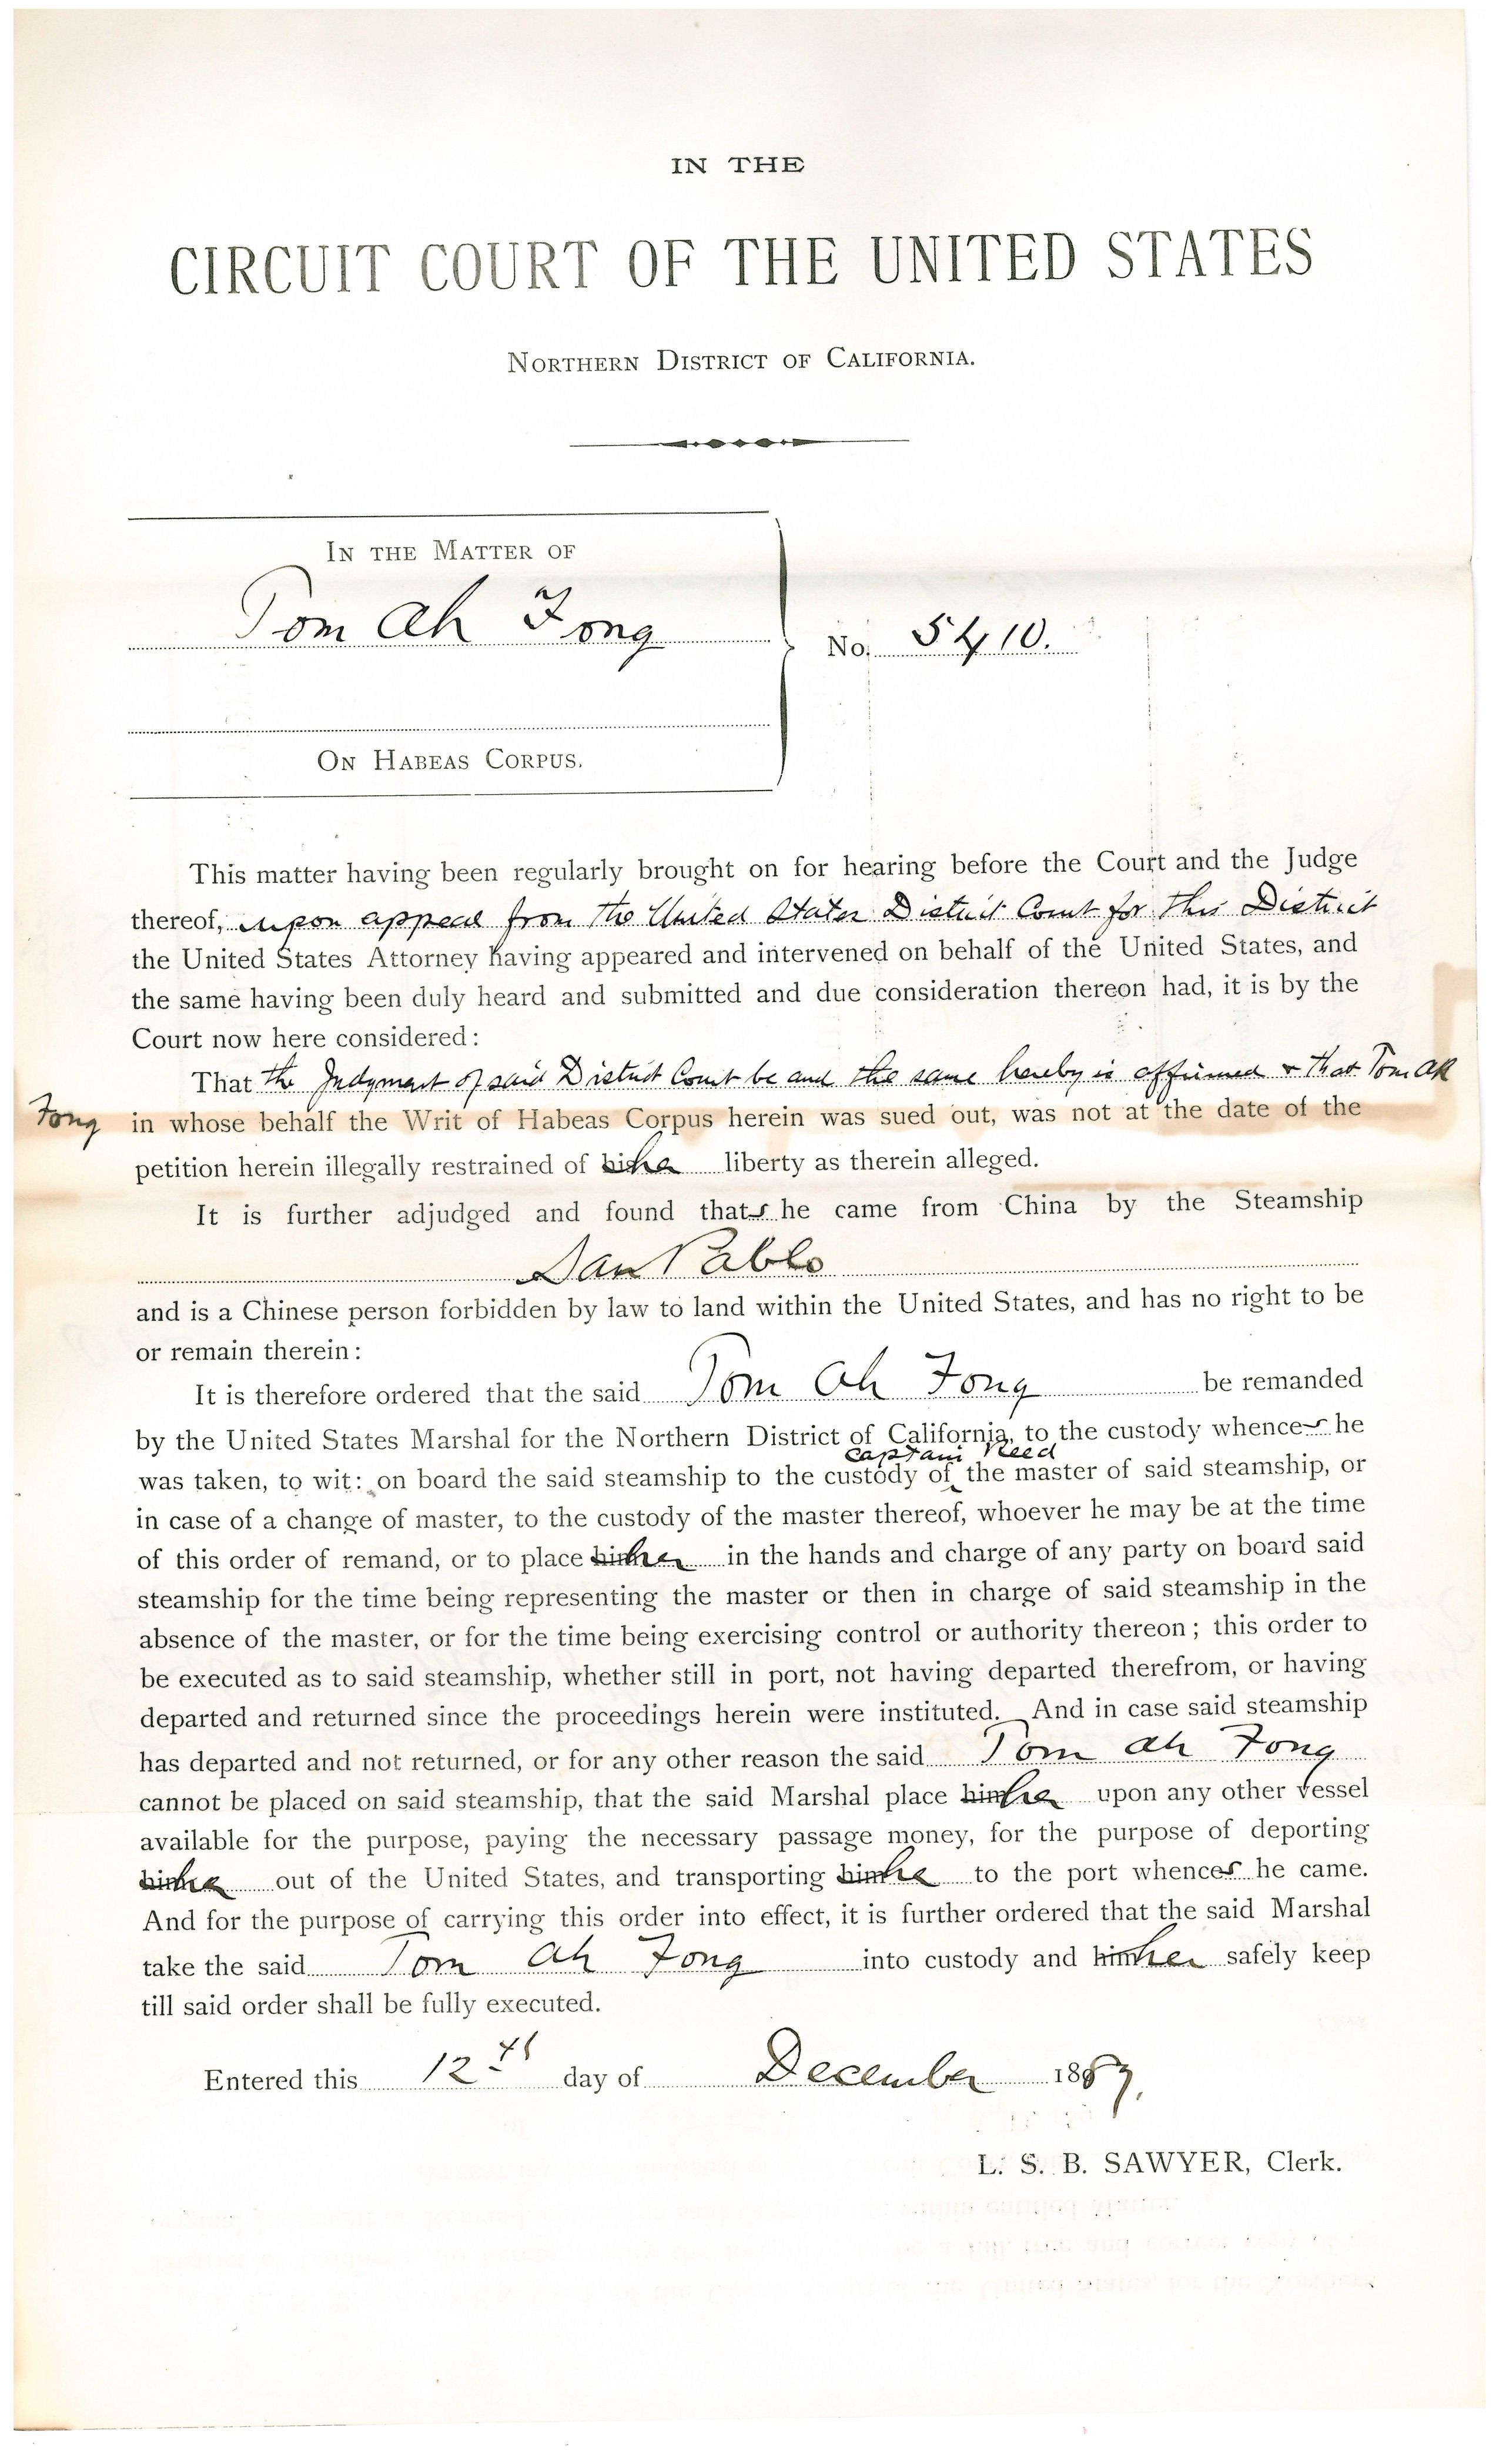 IN THE
CIRCUIT COURT OF THE UNITED STATES
NORTHERN DISTRICT OF CALIFORNIA.
IN THE MATTER OF
Tom Ah Fong
No. 5410.
ON HABEAS CORPUS.
This matter having been regularly brought on for hearing before the Court and the Judge
thereof, upon appeal from the United States District Court for this District
the United States Attorney having appeared and intervened on behalf of the United States, and
the same having been duly heard and submitted and due consideration thereon had, it is by the
Court now here considered:
That the Judgment of said District Court be and the same hereby is affirmed & that Tom Ah
Fong in whose behalf the Writ of Habeas Corpus herein was sued out, was not at the date of the
petition herein illegally restrained of his her liberty as therein alleged.
It is further adjudged and found that s he came from China by the Steamship
San Pablo
and is a Chinese person forbidden by law to land within the United States, and has no right to be
or remain therein:
It is therefore ordered that the said Tom Ah Fong be remanded
by the United States Marshal for the Northern District of California, to the custody whence s he
Captain Reed
was taken, to wit: on board the said steamship to the custody of ‸ the master of said steamship, or
in case of a change of master, to the custody of the master thereof, whoever he may be at the time
of this order of remand, or to place him her in the hands and charge of any party on board said
steamship for the time being representing the master or then in charge of said steamship in the
absence of the master, or for the time being exercising control or authority thereon; this order to
be executed as to said steamship, whether still in port, not having departed therefrom, or having
departed and returned since the proceedings herein were instituted. And in case said steamship
has departed and not returned, or for any other reason the said Tom Ah Fong
cannot be placed on said steamship, that the said Marshal place him her upon any other vessel
available for the purpose, paying the necessary passage money, for the purpose of deporting
him her out of the United States, and transporting him her to the port whence s he came.
And for the purpose of carrying this order into effect, it is further ordered that the said Marshal
take the said Tom Ah Fong into custody and him her safely keep
till said order shall be fully executed.
Entered this 12th day of December 1889.
L. S. B. SAWYER, Clerk.